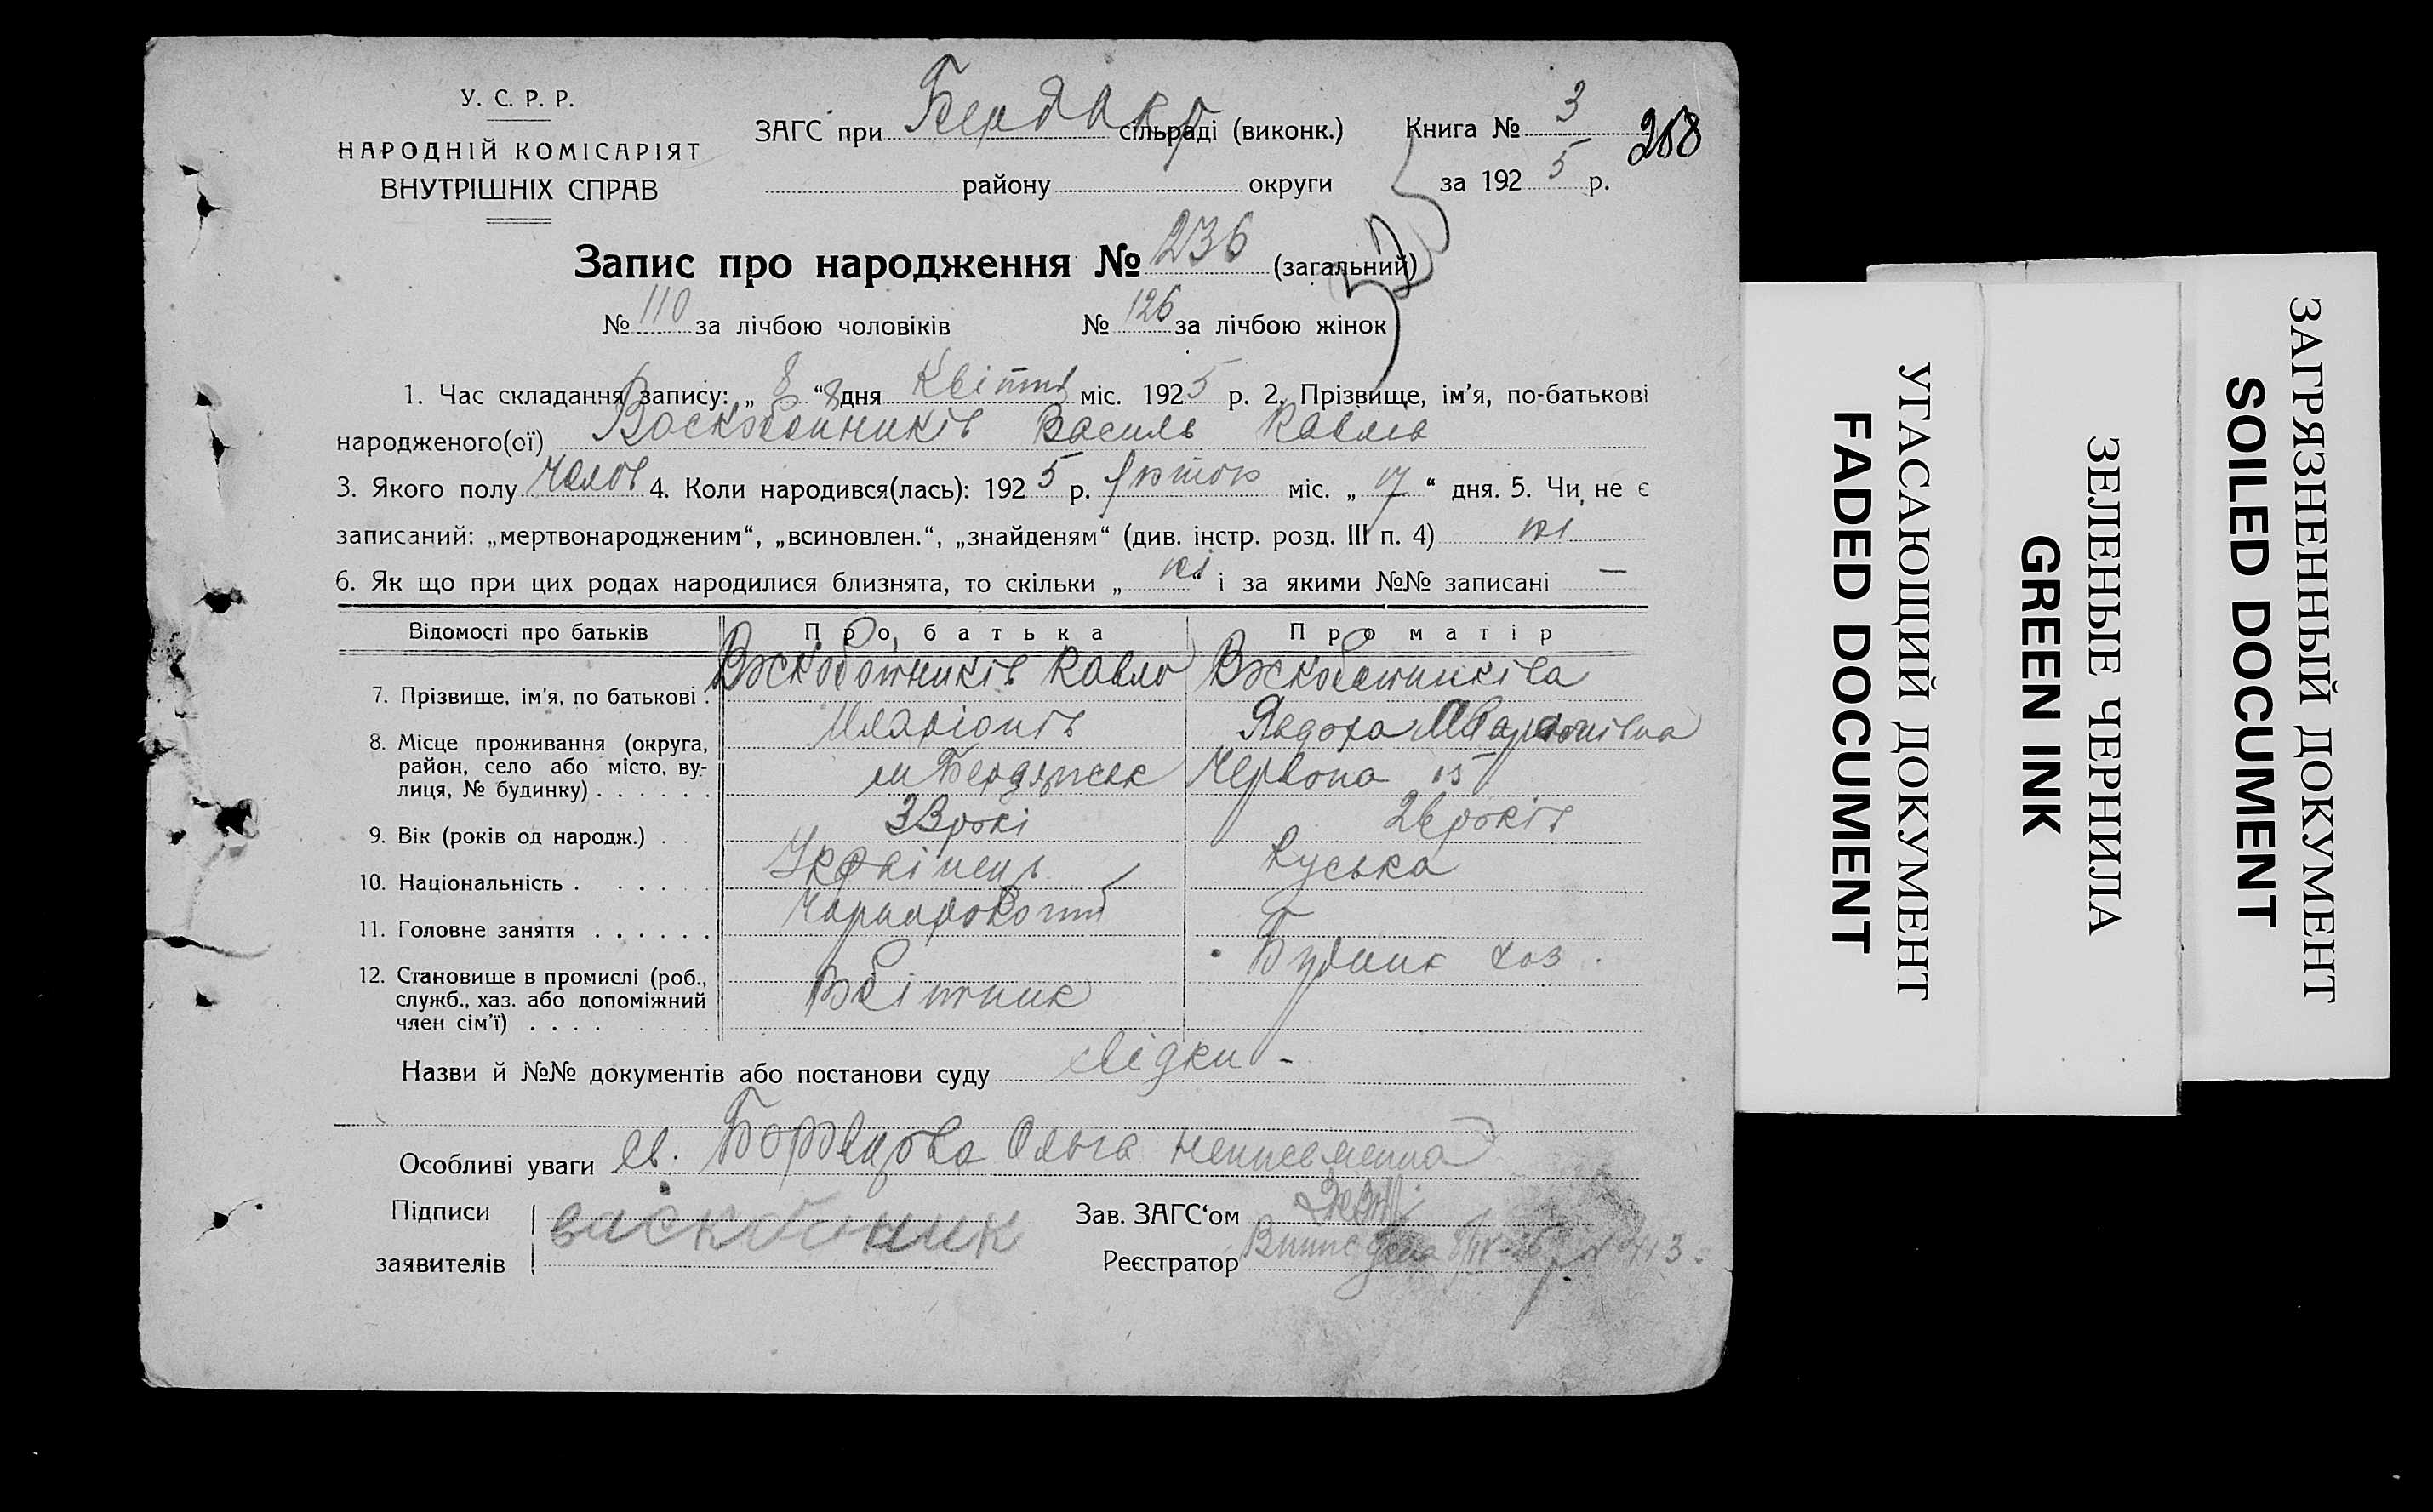 У. С. Р. Р.
НАРОДНІЙ КОМІСАРІЯТ
ВНУТРІШНІХ СПРАВ
ЗАГС при Бердокр сільраді (виконк.)
району округи
Книга № 3
258
за 1925 р.
Запис про народження № 236 (загальний)
№ 110 за лічбою чоловіків № 126 за лічбою жінок
1. Час складання запису: „ 8 “ 8 дня Квітня міс. 1925 р. 2. Прізвище, ім'я, по-батькові
народженого(ої) Василь Павлів
3. Якого полу Чолов 4. Коли народився(лась): 1925 р. Лютого міс. „ 17 “ дня. 5. Чи не є
записаний: „мертвонародженим“, „всиновлен.“, „знайденям“ (див. інстр. розд. III п. 4) ні
6. Як що при цих родах народилися близнята, то скільки „ ні і за якими №№ записані —
Відомості про батьків Про батька Про матір
7. Прізвище, ім'я, по батькові . Павло
Іларіонів Явдоха
8. Місце проживання (округа,
район, село або місто, ву-
лиця, № будинку) . . . . . . м Бердянськ Червона 15
9. Вік (років од народж.) . . 33 рокі 26 років
10. Національність . . . . . . Українець Руська
11. Головне заняття . . . . . . Чорнороботій
12. Становище в промислі (роб.,
служб., хаз. або допоміжний
член сім'ї) . . . . . . . . Робітник Будинк хоз.
Назви й №№ документів або постанови суду свідки -
Особливі уваги св. Ольга неписьменна
Підписи
заявителів
Зав. ЗАГС‘ом
Реєстратор
ЗАГРЯЗНЕННЫЙ ДОКУМЕНТ
SOILED DOCUMENT
ЗЕЛЕНЫЕ ЧЕРНИЛА
GREEN INK
УГАСАЮЩИЙ ДОКУМЕНТ
FADED DOCUMENT